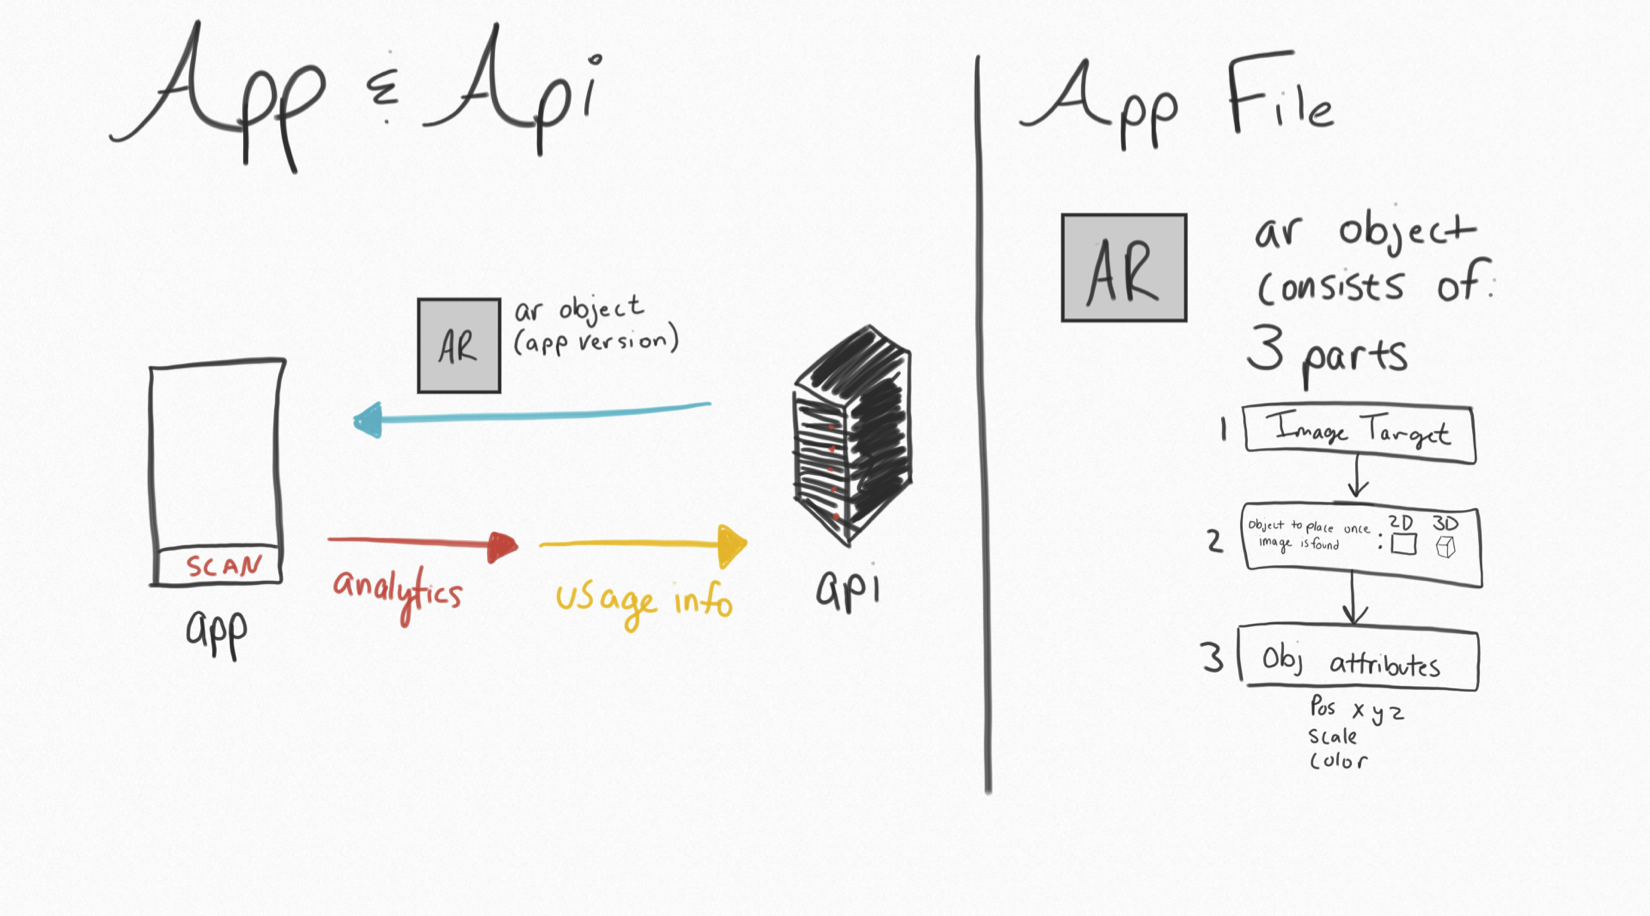 App & Api
AR
ar object
(app version)
SCAN
app
analytics
usage info
api
App File
AR
ar object
consists of:
3 parts
1 Image Target
2 Object to place once image is found : 2D 3D
3 Obj attributes
Pos x y z
Scale
Color